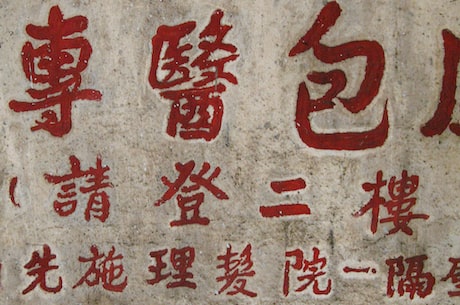 專醫包
請登二樓
先施理髮院一隔